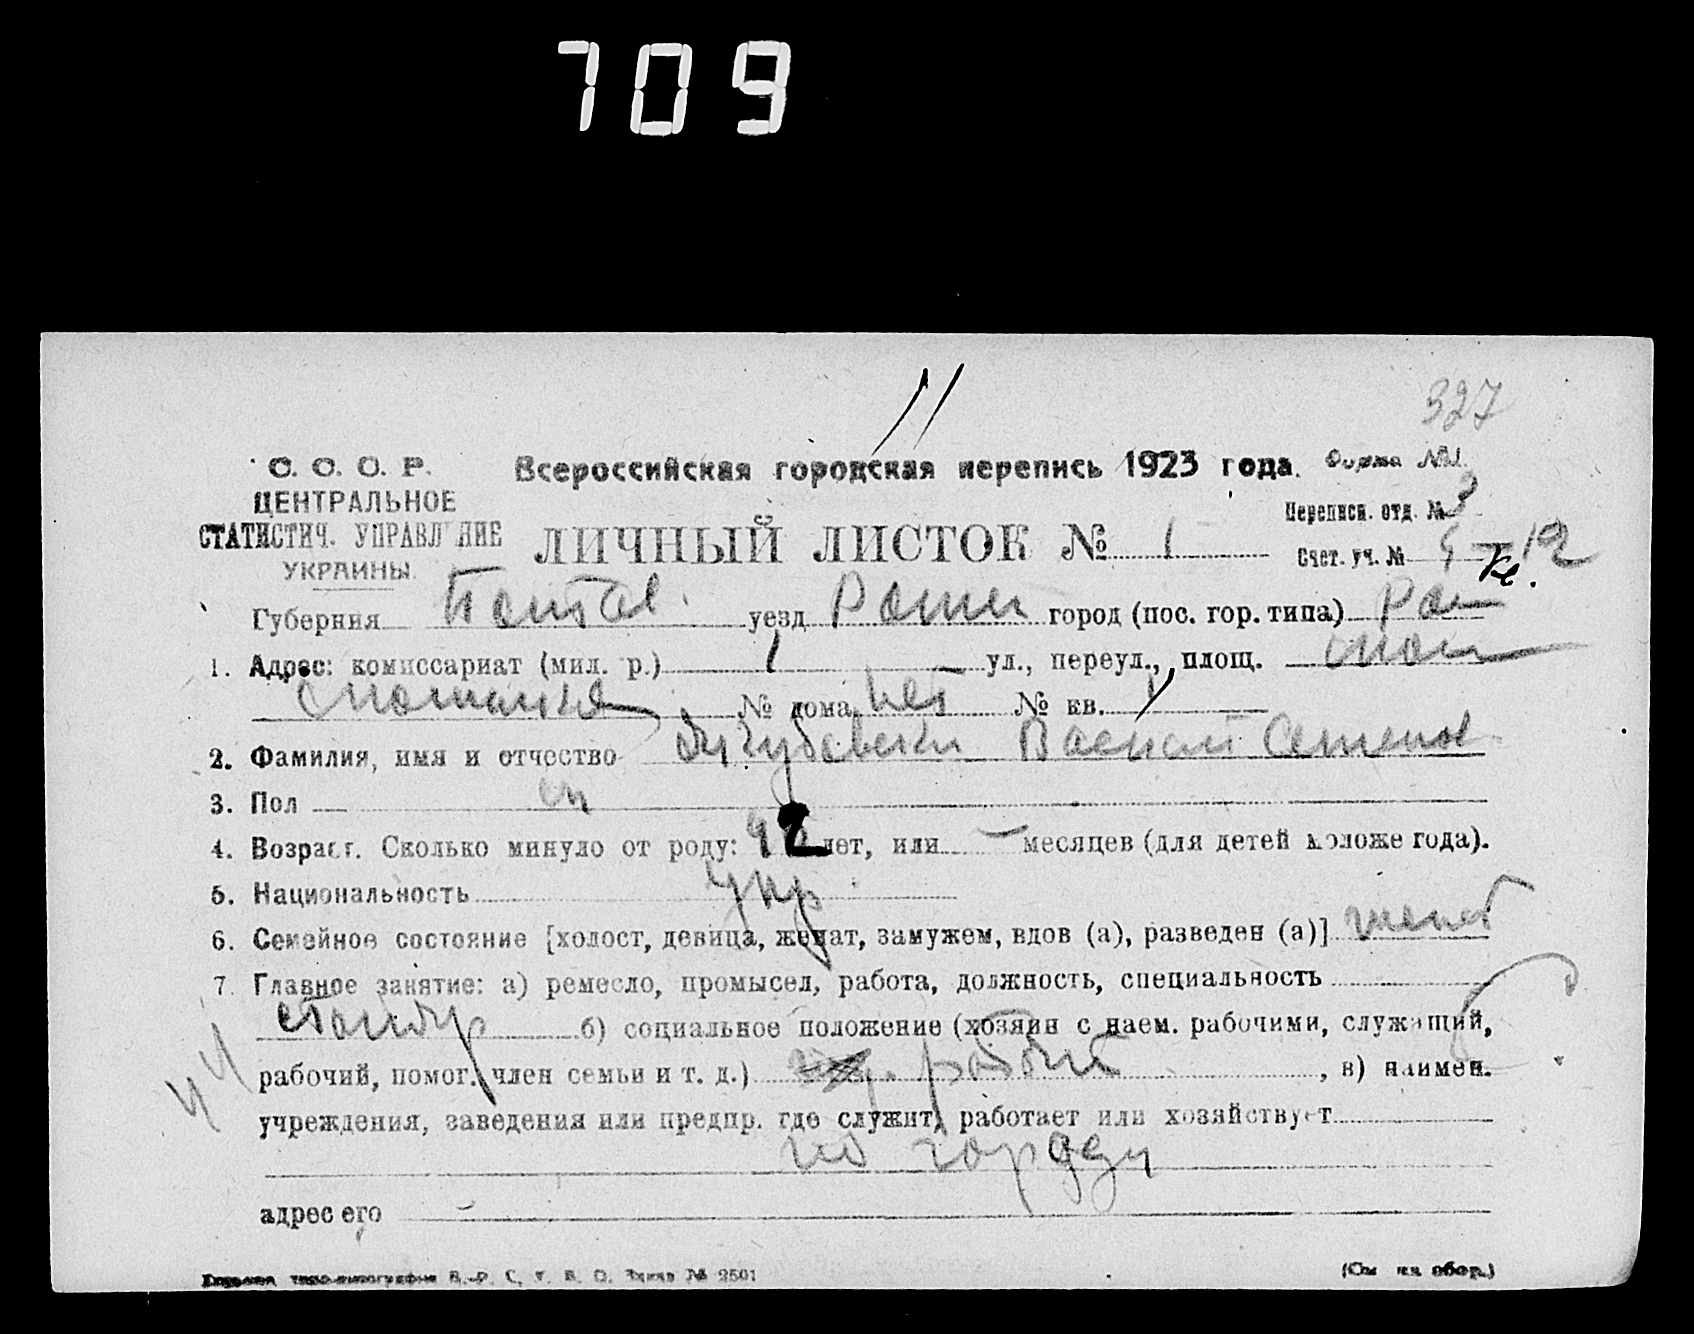 709
327
С. С. С. Р. Всероссийская городская перепись 1923 года. Форма №1.
ЦЕНТРАЛЬНОЕ
СТАТИСТИЧ. УПРАВЛЕНИЕ
УКРАИНЫ.
Переписн. отд. № 3
ЛИЧНЫЙ ЛИСТОК № 1
Счет. уч. № 5 - 12
Губерния Полтав. уезд Ромен город (пос. гор. типа) Ром
1. Адрес: комиссариат (мил. р.) 1 ул., переул., площ.
№ дома нет № кв.
2. Фамилия, имя и отчество Василий Семенов
3. Пол м
4. Возраст. Сколько минуло от роду: 42 лет, или — месяцев (для детей моложе года).
5. Национальность укр
6. Семейное состояние [холост, девица, женат, замужем, вдов (а), разведен (а)] женат
7. Главное занятие: а) ремесло, промысел, работа, должность, специальность
столяр б) социальное положение (хозяин с наем. рабочими, служащий,
44
рабочий, помог. член семьи и т. д.) рабочий, в) наимен.
учреждения, заведения или предпр. где служит, работает или хозяйствует
по городу
адрес его —
В.-У. С. Заказ № 2501 (См на обор.)